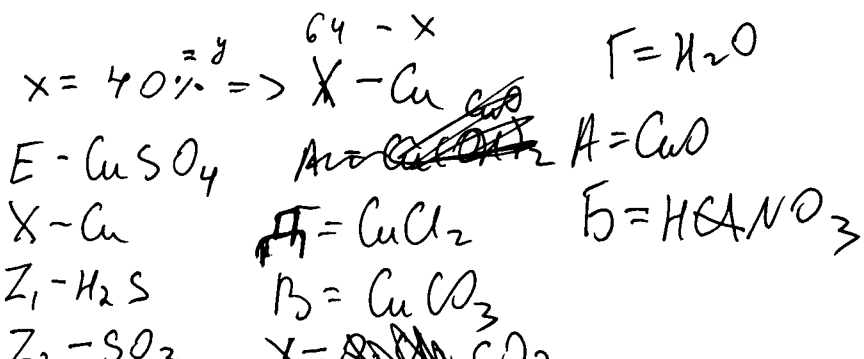 64 - x
x = 40% = y => X - Cu
Г = H₂O
E - CuSO₄
A = CuO
X - Cu
Д = CuCl₂
Б = HNO₃
Z₁ - H₂S
B = CuCO₃
Z₂ - SO₂
X - CO₂